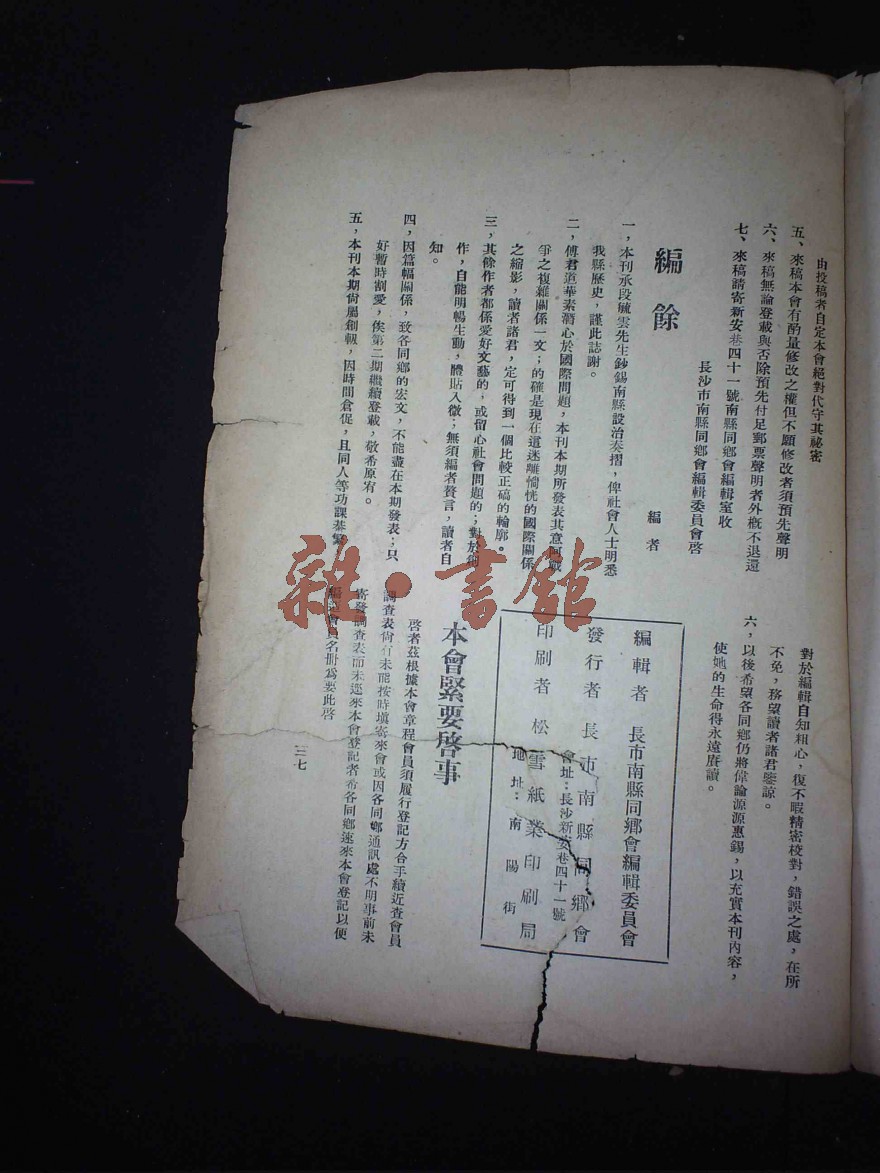 由投稿者自定本會絕對代守其祕密
五、來稿本會有酌量修改之權但不願修改者須預先聲明
六、來稿無論登載與否除預先付足郵票聲明者外概不退還
七、來稿請寄新安巷四十一號南縣同鄉會編輯室收
長沙市南縣同鄉會編輯委員會啓
編餘
編者
一，本刊承段毓雲先生鈔錫南縣設治奏摺，俾社會人士明悉
我縣歷史，謹此誌謝。
二，傅君道華素潛心於國際問題，本刊本期所發表其意阿戰
爭之複雜關係一文；的確是現在這迷離惝恍的國際關係
之縮影，讀者諸君，定可得到一個比較正碻的輪廓。
三，其餘作者都係愛好文藝的，或留心社會問題的；對於
作，自能明暢生動，體貼入微；無須編者贅言，讀者自
知。
四，因篇幅關係，致各同鄉的宏文，不能盡在本期發表；只
好暫時割愛，俟第二期繼續登載，敬希原宥。
五，本刊本期尙屬創輯，因時間倉促，且同人等功課綦繁
對於編輯自知粗心，復不暇精密校對，錯誤之處，在所
不免，務望讀者諸君鑒諒。
六，以後希望各同鄉仍將偉論源源惠錫，以充實本刊內容，
使她的生命得永遠賡讀。
編輯者 長市南縣同鄉會編輯委員會
發行者 長市南縣同鄉會
會址：長沙新安巷四十一號
印刷者 松雪紙業印刷局
地址：南陽街
本會緊要啓事
啓者茲根據本會章程會員須履行登記方合手續近查會員
調查表尙有未能按時塡寄來會或因各同鄉通訊處不明事前未
寄發調查表而未逕來本會登記者希各同鄉速來本會登記以便
編造會員名冊爲要此啓
三七
雜·書館